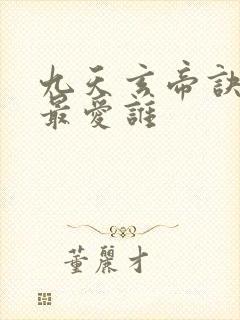 九天玄帝訣
最愛誰
董麗才